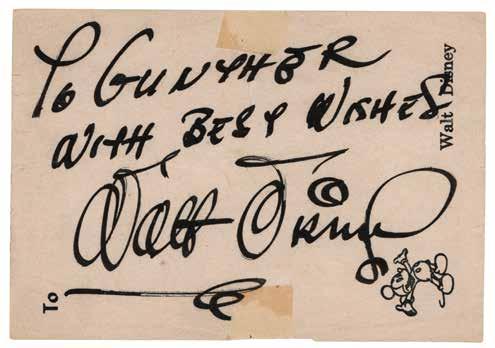 To GUNTHER
WITH BEST WISHES
Walt Disney
To
Walt Disney